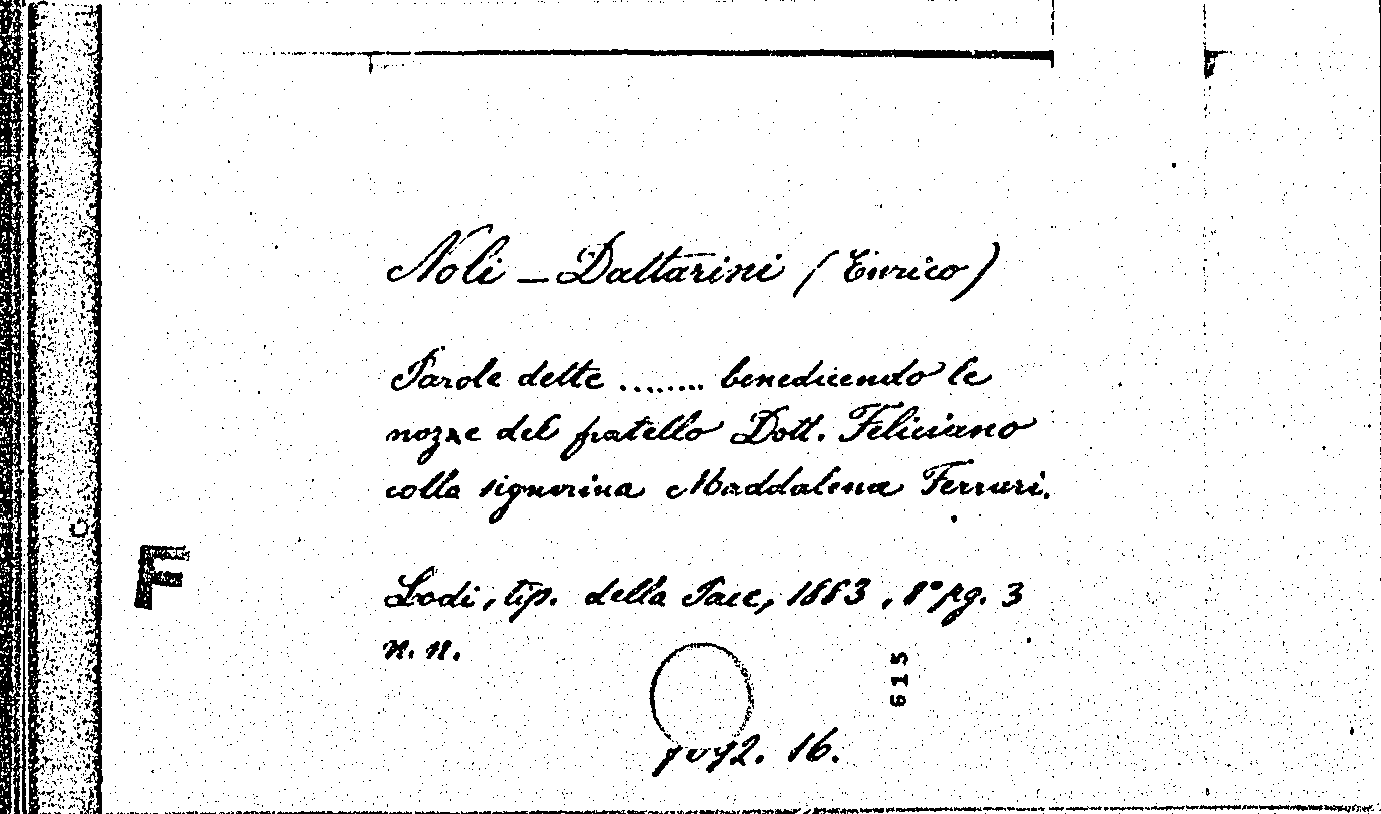 Noli - Dattarini (Enrico)
Parole dette ........ benedicendo le
nozze del fratello Dott. Feliciano
colla signorina Maddalena Ferrari.
F
Lodi, tip. della Pace, 1883, 8° pg. 3
n. n.
615
7092. 16.